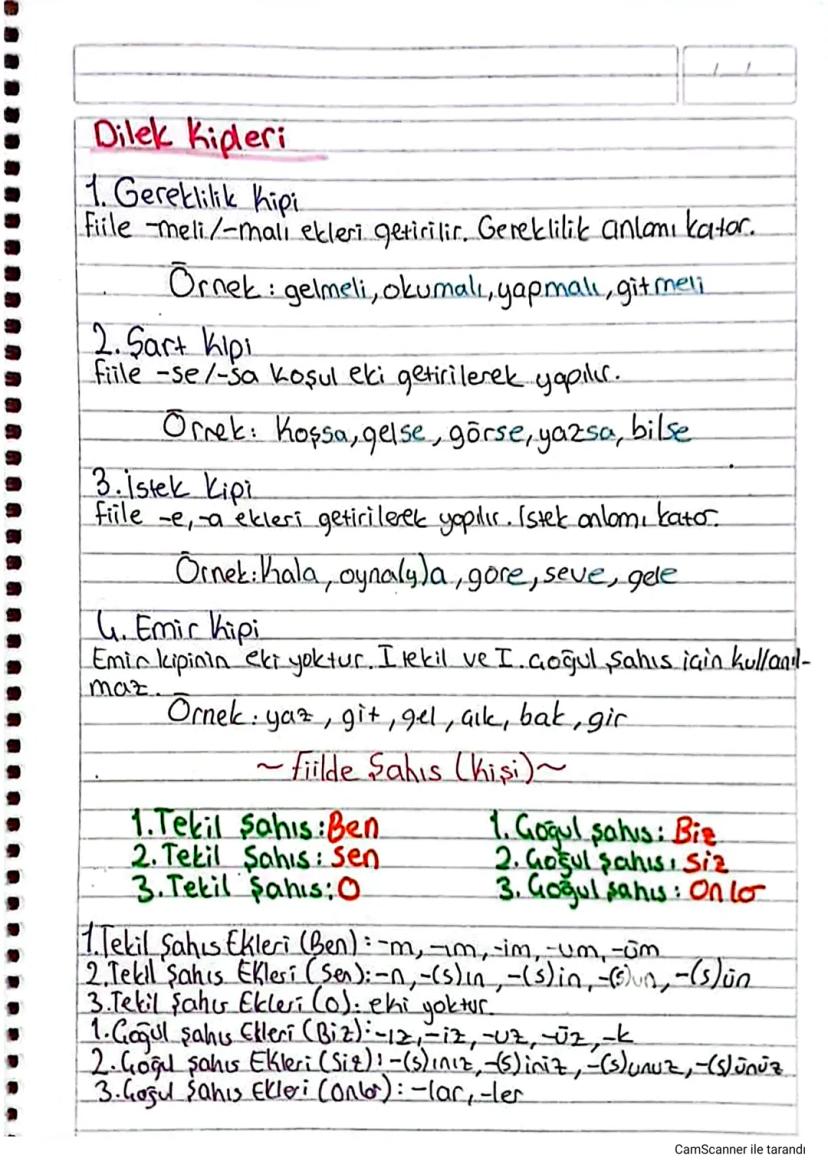 / /
Dilek Kipleri
1. Gereklilik Kipi
Fiile -meli/-malı ekleri getirilir. Gereklilik anlamı katar.
Örnek: gelmeli, okumalı, yapmalı, gitmeli
2. Şart Kipi
Fiile -se/-sa koşul eki getirilerek yapılır.
Örnek: Koşsa, gelse, görse, yazsa, bilse
3. İstek Kipi
Fiile -e, -a ekleri getirilerek yapılır. İstek anlamı katar.
Örnek: Kala, oyna(y)a, göre, seve, gele
4. Emir Kipi
Emir kipinin eki yoktur. I tekil ve I. Çoğul şahıs için kullanıl-
maz.
Örnek: yaz, git, gel, çık, bak, gir
~ Fiilde Şahıs (Kişi) ~
1. Tekil Şahıs: Ben
1. Çoğul şahıs: Biz
2. Tekil Şahıs: Sen
2. Çoğul şahıs: Siz
3. Tekil Şahıs: O
3. Çoğul şahıs: Onlar
1. Tekil Şahıs Ekleri (Ben): -m, -ım, -im, -um, -üm
2. Tekil Şahıs Ekleri (Sen): -n, -(s)ın, -(s)in, -(s)un, -(s)ün
3. Tekil Şahıs Ekleri (O): eki yoktur.
1. Çoğul şahıs Ekleri (Biz): -ız, -iz, -uz, -üz, -k
2. Çoğul şahıs Ekleri (Siz): -(s)ınız, -(s)iniz, -(s)unuz, -(s)ünüz
3. Çoğul Şahıs Ekleri (Onlar): -lar, -ler
CamScanner ile tarandı